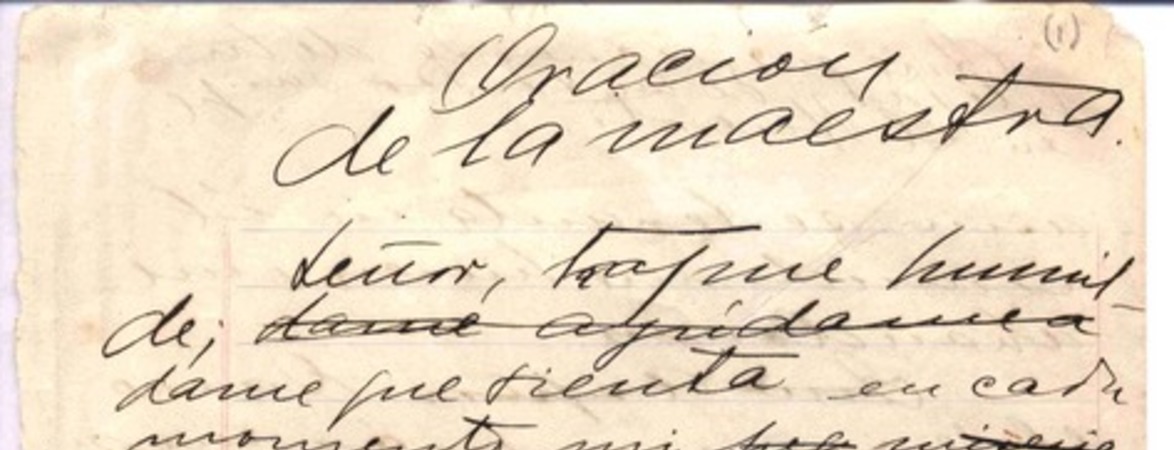 (1)
Oracion
de la maestra.
Señor, hazme humil-
de; dame ayúdame a
dame que sienta en cada
momento mi